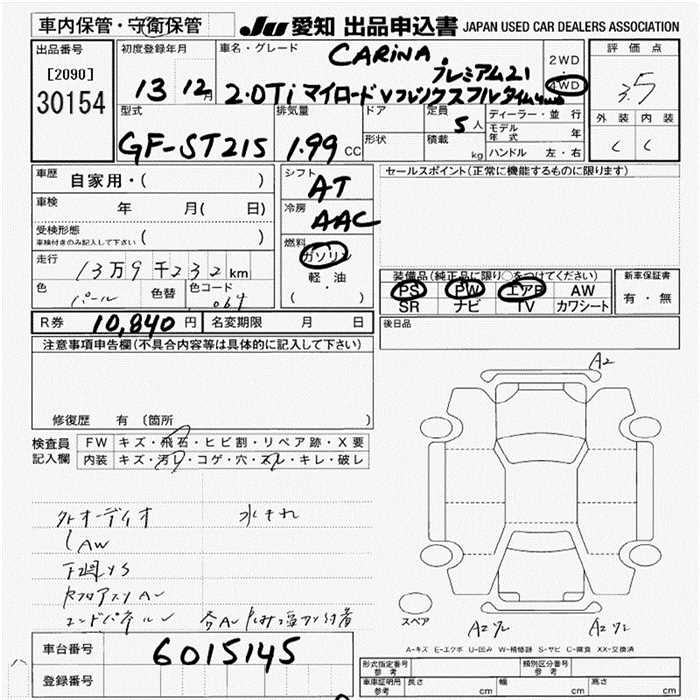 車内保管・守衛保管
JU 愛知 出品申込書 JAPAN USED CAR DEALERS ASSOCIATION
出品番号
[2090]
30154
初度登録年月
13 12月
車名・グレード
CARINA
プレミアム21
2.0Ti マイロード
2WD
・
4WD
評価点
3.5
外装 内装
C C
型式
GF-ST215
排気量
1.99 CC
ドア
形状
定員
5人
積載
kg
ディーラー・並行
モデル年式 年
ハンドル 左・右
車歴
自家用・( )
車検
年 月( 日)
受検形態
車検付きのみ記入して下さい
( )
走行
13万9千232km
色
パール
色替
色コード
064
シフト
AT
冷房
AAC
燃料
ガソリン
・
軽油
( )
セールスポイント(正常に機能するものに限ります)
装備品(純正品に限り○をつけてください)
PS PW エアB AW
SR ナビ TV カワシート
新車保証書
有・無
R券 10,840円
名変期限 月 日
後日品
注意事項申告欄(不具合内容等は具体的に記入して下さい)
修復歴 有 〔箇所 〕
検査員記入欄
FW キズ・飛石・ヒビ割・リペア跡・X要
内装 キズ・汚レ・コゲ・穴・スレ・キレ・破レ
外オーディオ 水もれ
AW
下廻りS
A2
A2
A2
スペア
A-キズ E-エクボ U-凹み W-補修跡 S-サビ C-腐食 XX-交換済
車台番号
6015145
登録番号
形式指定番号
参考
類別区分番号
参考
車庫証明用
参考
長さ cm
幅 cm
高さ cm